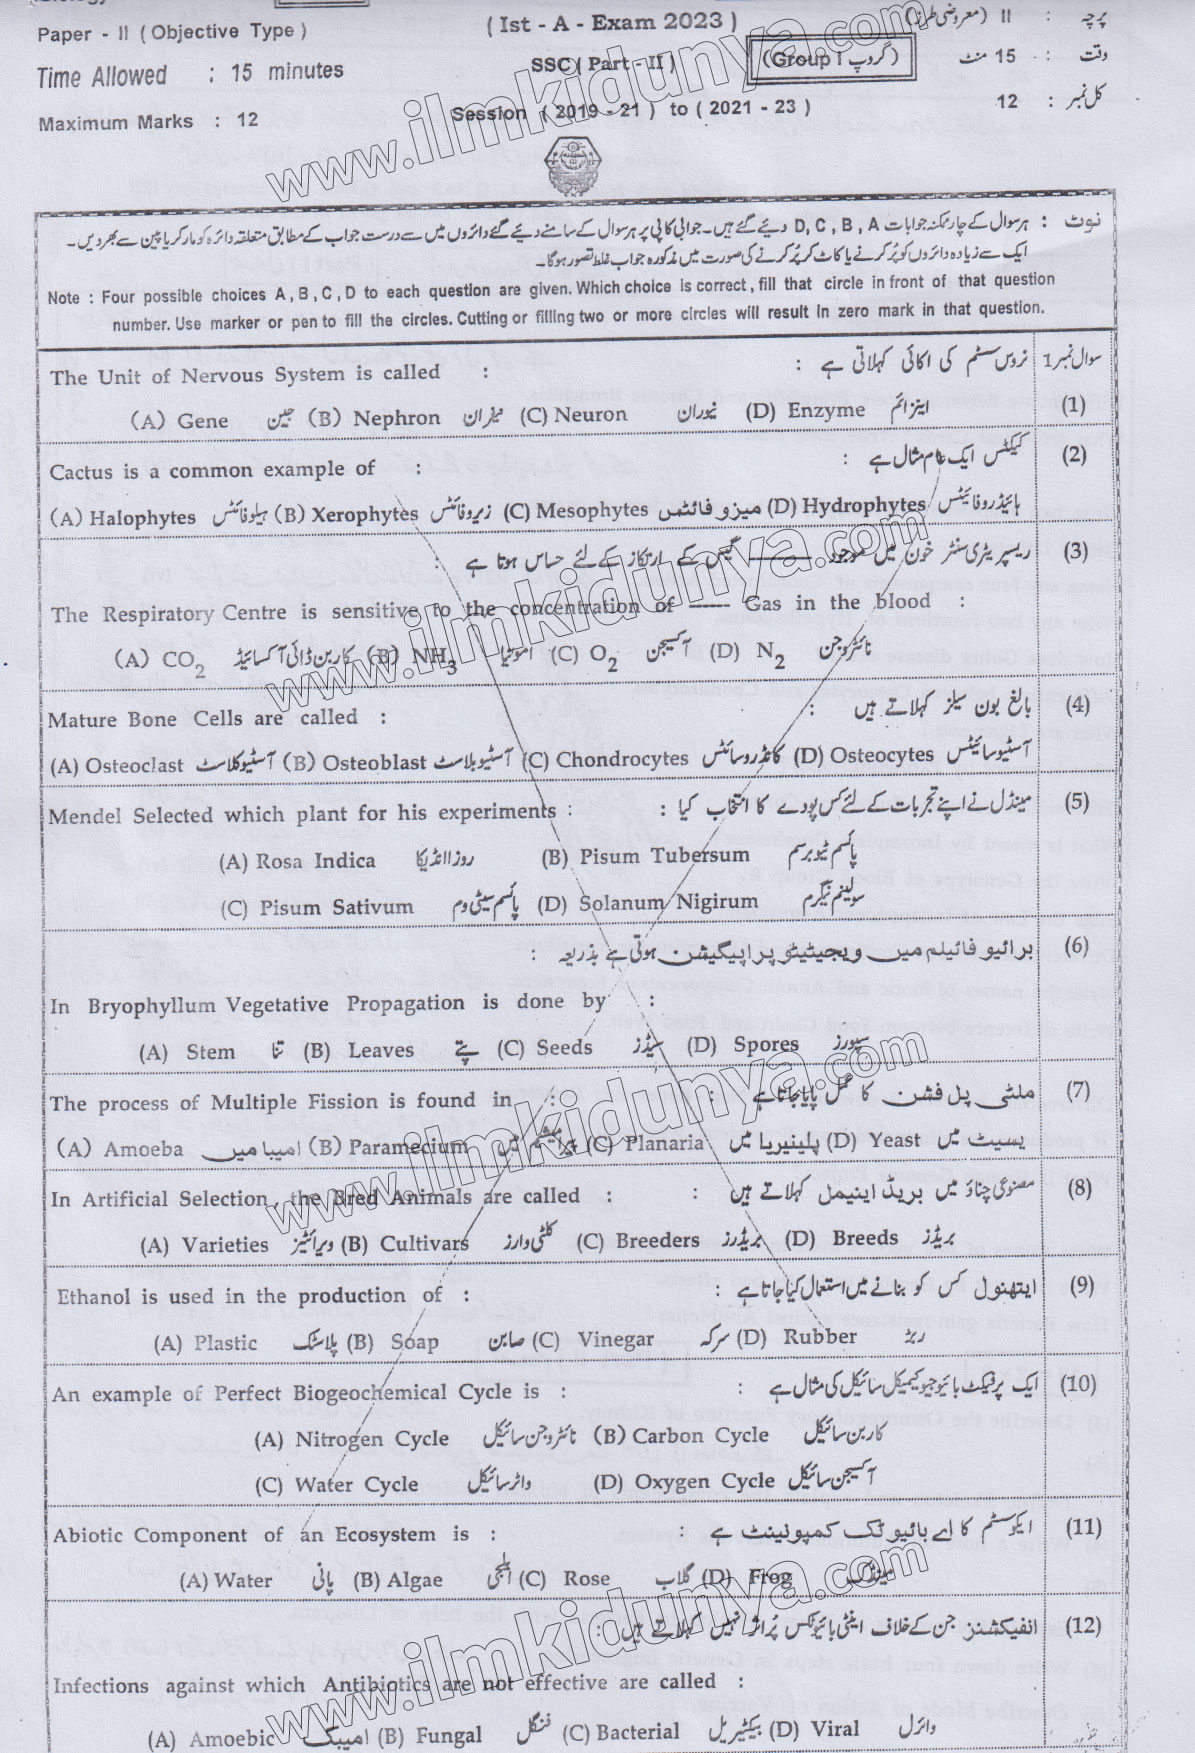 Paper - II ( Objective Type )
( Ist - A - Exam 2023 )
پرچہ : II (معروضی طرز)
Time Allowed : 15 minutes
SSC ( Part - II )
(Group I گروپ)
وقت : 15 منٹ
Maximum Marks : 12
Session ( 2019 - 21 ) to ( 2021 - 23 )
کل نمبر : 12
نوٹ : ہر سوال کے چار ممکنہ جوابات D , C , B , A دیئے گئے ہیں۔ جوابی کاپی پر ہر سوال کے سامنے دیئے گئے دائروں میں سے درست جواب کے مطابق متعلقہ دائرہ کو مارکر یا پین سے بھر دیں۔
ایک سے زیادہ دائروں کو پُر کرنے یا کاٹ کر پُر کرنے کی صورت میں مذکورہ جواب غلط تصور ہوگا۔
Note : Four possible choices A , B , C , D to each question are given. Which choice is correct , fill that circle in front of that question
number. Use marker or pen to fill the circles. Cutting or filling two or more circles will result in zero mark in that question.
سوال نمبر 1 نروس سسٹم کی اکائی کہلاتی ہے :
The Unit of Nervous System is called :
(1)
(A) Gene جین (B) Nephron نیفران (C) Neuron نیوران (D) Enzyme اینزائم
(2) کیکٹس ایک عام مثال ہے :
Cactus is a common example of :
(A) Halophytes ہیلوفائٹس (B) Xerophytes زیروفائٹس (C) Mesophytes میزوفائٹس (D) Hydrophytes ہائیڈروفائیٹس
(3) ریسپریٹری سنٹر خون میں موجود ------ گیس کے ارتکاز کے لئے حساس ہوتا ہے :
The Respiratory Centre is sensitive to the concentration of ----- Gas in the blood :
(A) CO2 کاربن ڈائی آکسائیڈ (B) NH3 امونیا (C) O2 آکسیجن (D) N2 نائٹروجن
(4) بالغ بون سیلز کہلاتے ہیں :
Mature Bone Cells are called :
(A) Osteoclast آسٹیوکلاسٹ (B) Osteoblast آسٹیوبلاسٹ (C) Chondrocytes کانڈروسائٹس (D) Osteocytes آسٹیوسائیٹس
(5) مینڈل نے اپنے تجربات کے لئے کس پودے کا انتخاب کیا :
Mendel Selected which plant for his experiments :
(A) Rosa Indica روزا انڈیکا (B) Pisum Tubersum پائسم ٹیوبرسم
(C) Pisum Sativum پائسم سیٹی وم (D) Solanum Nigirum سولینم نیگرم
(6) برائیوفائیلم میں ویجیٹیٹو پراپیگیشن ہوتی ہے بذریعہ :
In Bryophyllum Vegetative Propagation is done by :
(A) Stem تنا (B) Leaves پتے (C) Seeds سیڈز (D) Spores سپورز
(7) ملٹی پل فشن کا عمل پایا جاتا ہے :
The process of Multiple Fission is found in :
(A) Amoeba امیبا میں (B) Paramecium پیرامیشیم میں (C) Planaria پلینیریا میں (D) Yeast یسیٹ میں
(8) مصنوعی چناؤ میں بریڈ اینیمل کہلاتے ہیں :
In Artificial Selection , the Bred Animals are called :
(A) Varieties ویرائٹیز (B) Cultivars کلٹی وارز (C) Breeders بریڈرز (D) Breeds بریڈز
(9) ایتھنول کس کو بنانے میں استعمال کیا جاتا ہے :
Ethanol is used in the production of :
(A) Plastic پلاسٹک (B) Soap صابن (C) Vinegar سرکہ (D) Rubber ربڑ
(10) ایک پرفیکٹ بائیوجیوکیمیکل سائیکل کی مثال ہے :
An example of Perfect Biogeochemical Cycle is :
(A) Nitrogen Cycle نائٹروجن سائیکل (B) Carbon Cycle کاربن سائیکل
(C) Water Cycle واٹر سائیکل (D) Oxygen Cycle آکسیجن سائیکل
(11) ایکوسسٹم کا اے بائیوٹک کمپونینٹ ہے :
Abiotic Component of an Ecosystem is :
(A) Water پانی (B) Algae الجی (C) Rose گلاب (D) Frog مینڈک
(12) انفیکشنز جن کے خلاف اینٹی بائیوٹکس پُر اثر نہیں کہلاتے ہیں :
Infections against which Antibiotics are not effective are called :
(A) Amoebic امیبک (B) Fungal فنگل (C) Bacterial بیکٹیریل (D) Viral وائرل
www.ilmkidunya.com
www.ilmkidunya.com
www.ilmkidunya.com
www.ilmkidunya.com